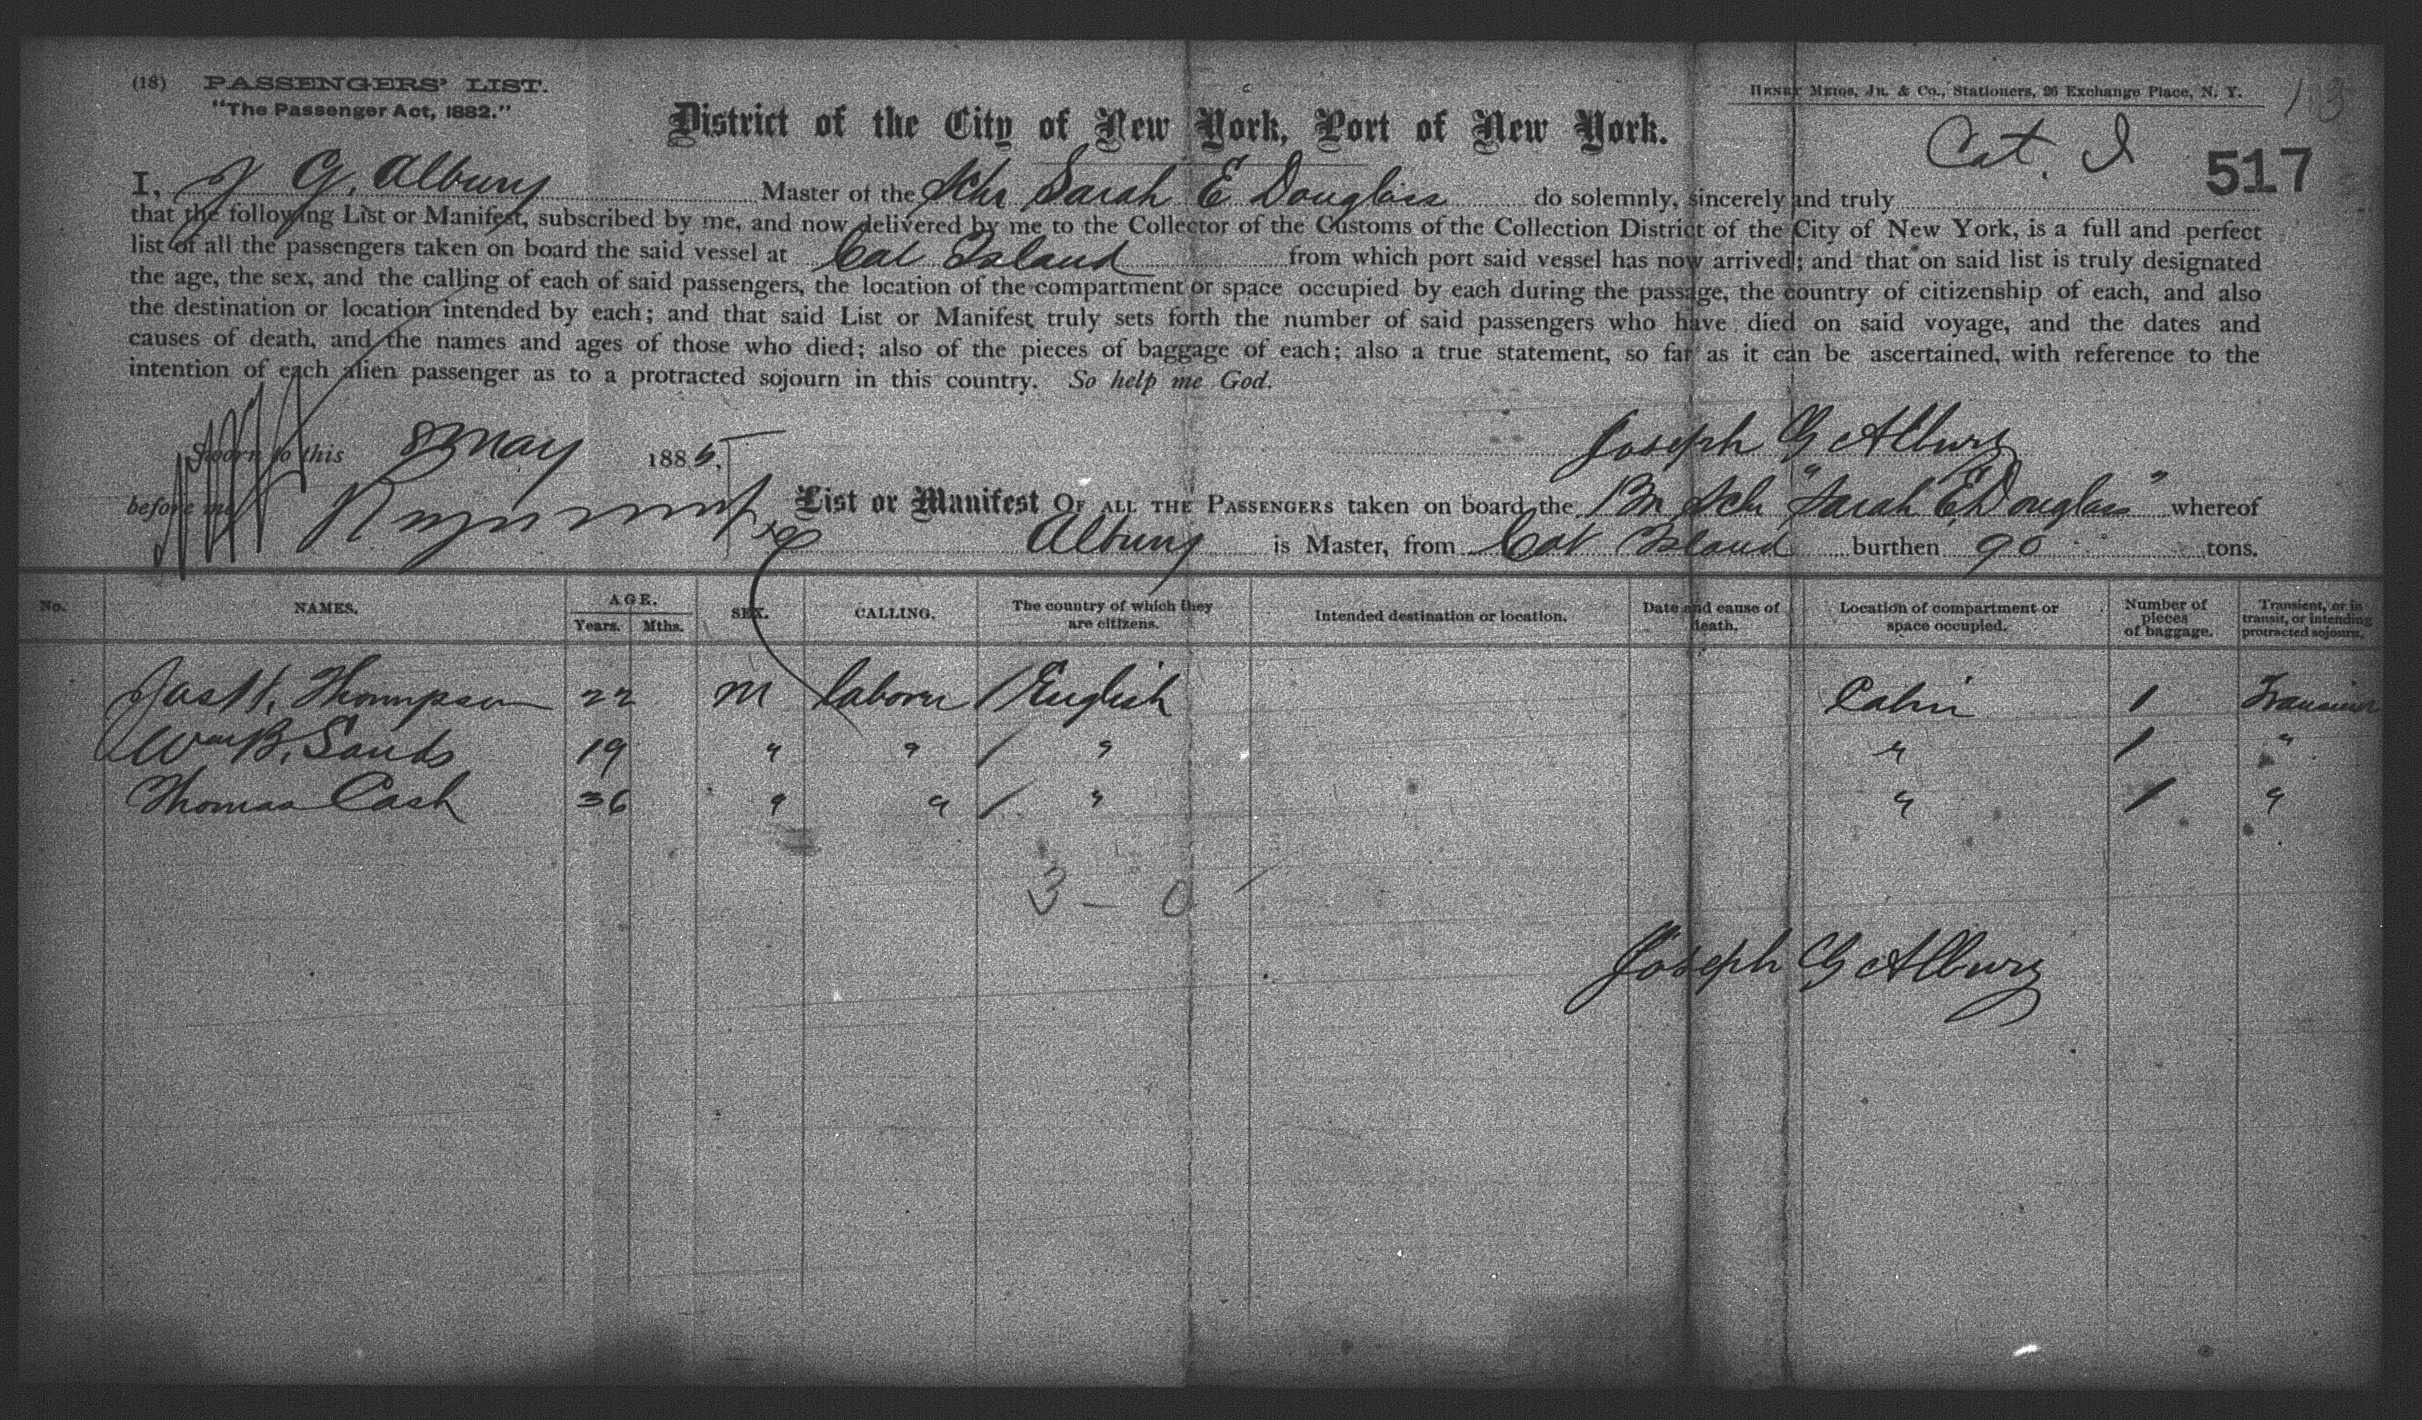 (18) PASSENGERS' LIST.
"The Passenger Act, 1882."
HENRY MEIGS, JR. & CO., Stationers, 96 Exchange Place, N. Y.
District of the City of New York, Port of New York.
Cat. I
517
I, J G. Albury Master of the Schr Sarah E Douglass do solemnly, sincerely and truly
that the following List or Manifest, subscribed by me, and now delivered by me to the Collector of the Customs of the Collection District of the City of New York, is a full and perfect
list of all the passengers taken on board the said vessel at Cat Island from which port said vessel has now arrived; and that on said list is truly designated
the age, the sex, and the calling of each of said passengers, the location of the compartment or space occupied by each during the passage, the country of citizenship of each, and also
the destination or location intended by each; and that said List or Manifest truly sets forth the number of said passengers who have died on said voyage, and the dates and
causes of death, and the names and ages of those who died; also of the pieces of baggage of each; also a true statement, so far as it can be ascertained, with reference to the
intention of each alien passenger as to a protracted sojourn in this country. So help me God.
Sworn to this 8 May 1885,
Joseph G Albury
before me
List or Manifest OF ALL THE PASSENGERS taken on board the Br Schr "Sarah E Douglass" whereof
Albury is Master, from Cat Island burthen 90 tons.
No. NAMES. AGE. Years. Mths. SEX. CALLING. The country of which they are citizens. Intended destination or location. Date and cause of death. Location of compartment or space occupied. Number of pieces of baggage. Transient, or in transit, or intending protracted sojourn.
Jas H. Thompson 22 M laborer / English Cabin 1 Transient
Wm B. Sands 19 " " / " " 1 "
Thomas Cash 36 " " / " " 1 "
3 – 0
Joseph G Albury